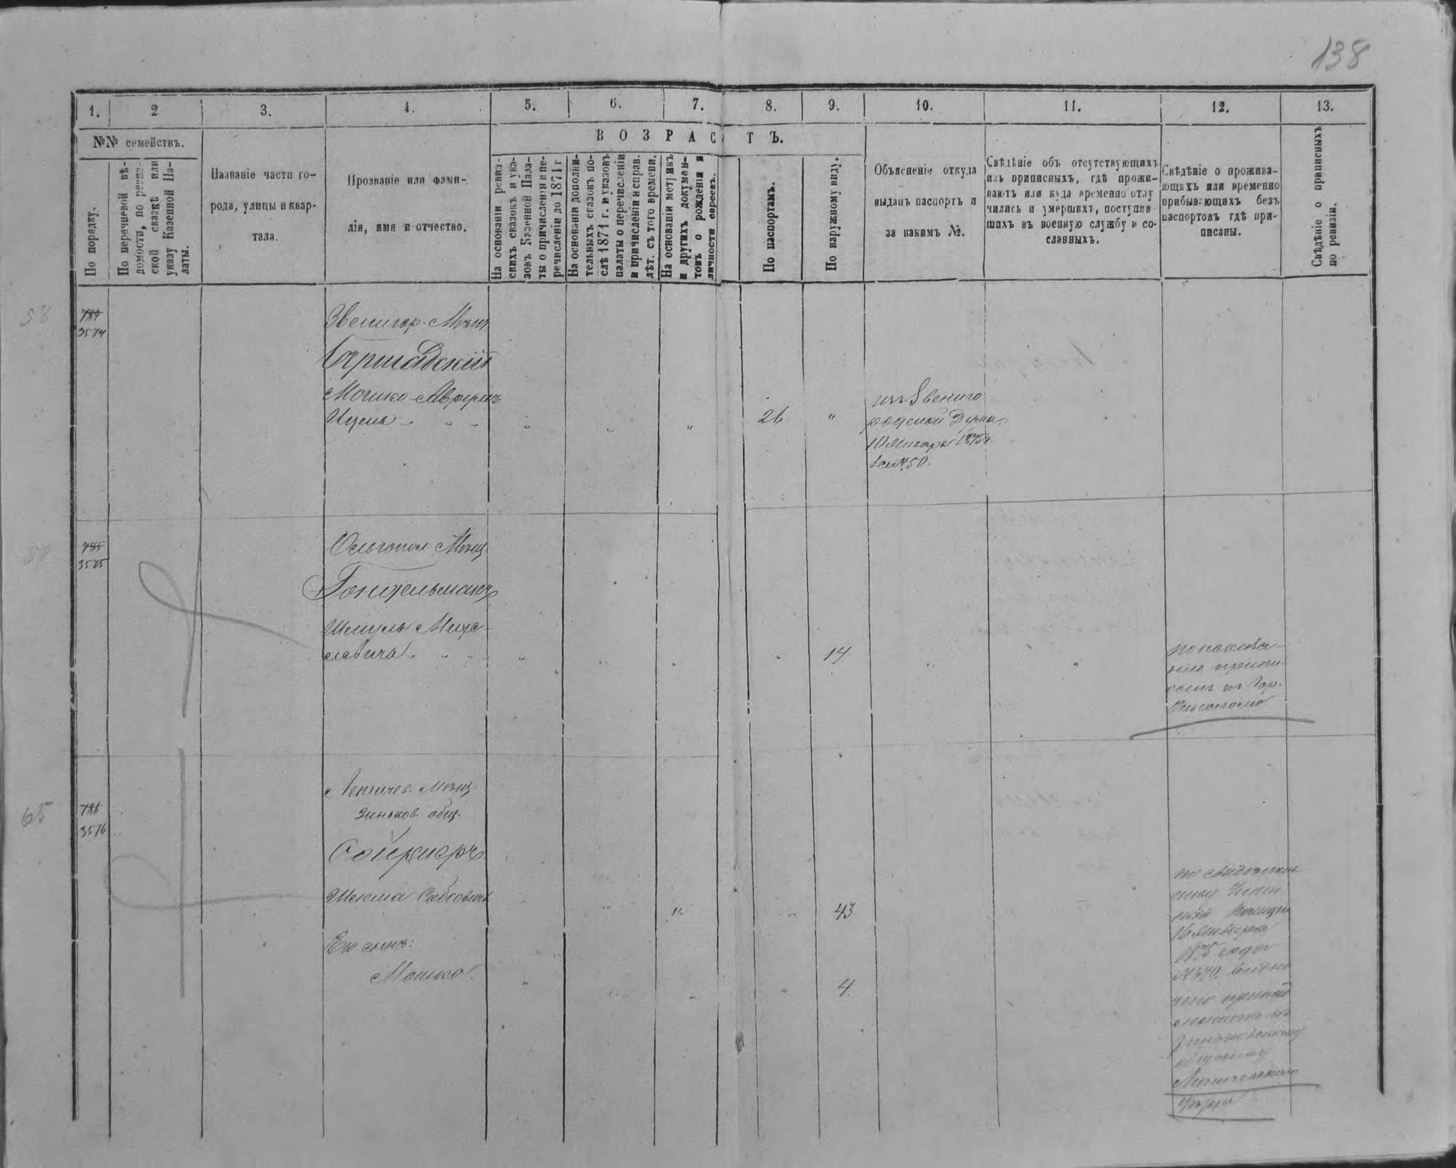 138
1. 2 3. 4. 5. 6. 7. 8. 9. 10. 11. 12. 13.
№№ семействъ.
По порядку.
По перечневой вѣ-
домости, по ревиз-
ской сказкѣ или
указу Казенной Па-
латы.
Названіе части го-
рода, улицы и квар-
тала.
Прозваніе или фами-
лія, имя и отчество.
ВОЗРАСТЪ.
На основаніи ревиз-
скихъ сказокъ и ука-
зовъ Казенной Пала-
ты о причисленіи и пе-
речисленіи до 1871 г
На основаніи дополни-
тельныхъ сказокъ по-
слѣ 1871 г. и указовъ
палаты о перечисленіи
и причисленіи и справ.
лѣт. съ того времени.
На основаніи метрикъ
и другихъ докумен-
товъ о рожденіи и
личности евреевъ.
По паспортамъ.
По наружному виду.
Объясненіе откуда
выданъ паспортъ и
за какимъ №.
Свѣдѣніе объ отсутствующихъ
изъ приписныхъ, гдѣ прожи-
ваютъ или куда временно отлу
чились и умершихъ, поступив
шихъ въ военную службу и со-
сланныхъ.
Свѣдѣніе о прожива-
ющихъ или временно
прибывающихъ безъ
паспортовъ гдѣ при-
писаны.
Свѣдѣніе о приписныхъ
по ревизіи.
58
784
3574
Звенигор. Мѣщ
Бершадскій
Мошко Аврумъ
Ицеля
26
изъ Звениго
родской Думы
10 Января 1875 г
за № 50.
785
3575
Ольгопол Мѣщ
Гонтельманъ
Шмуль Миха-
елевичъ
14
по показа-
нію припи-
санъ къ Гор.
Ольгополю
65
786
3576
Летичев. Мѣщ.
Зиньков. общ.
Сойферъ
Шлема Сабсовичъ
43
Его сынъ:
Мошко.
4
по свидѣтель
16 Января
1875 года
видно
что принад
лежитъ къ
Зиньковскому
обществу
Летичевскаго
Уѣзда